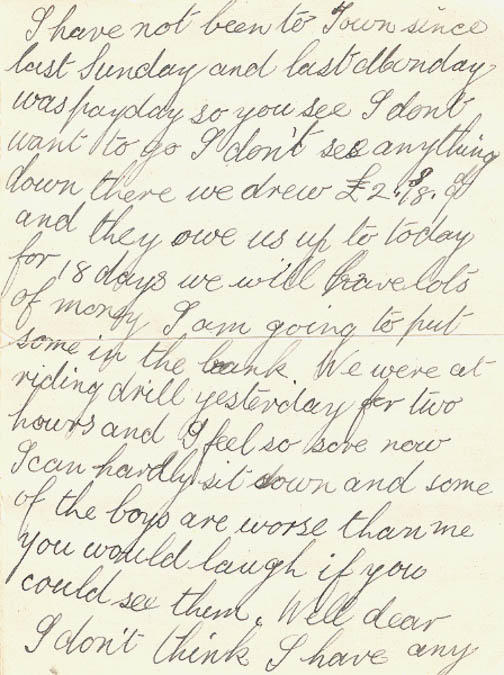 I have not been to Town since
last Sunday and last Monday
was payday so you see I dont
want to go I don't see anything
down there we drew £2.18.
and they owe us up to today
for 18 days we will have lots
of money I am going to put
some in the bank. We were at
riding drill yesterday for two
hours and I feel so sore now
I can hardly sit down and some
of the boys are worse than me
You would laugh if you
could see them. Well dear
I don't think I have any